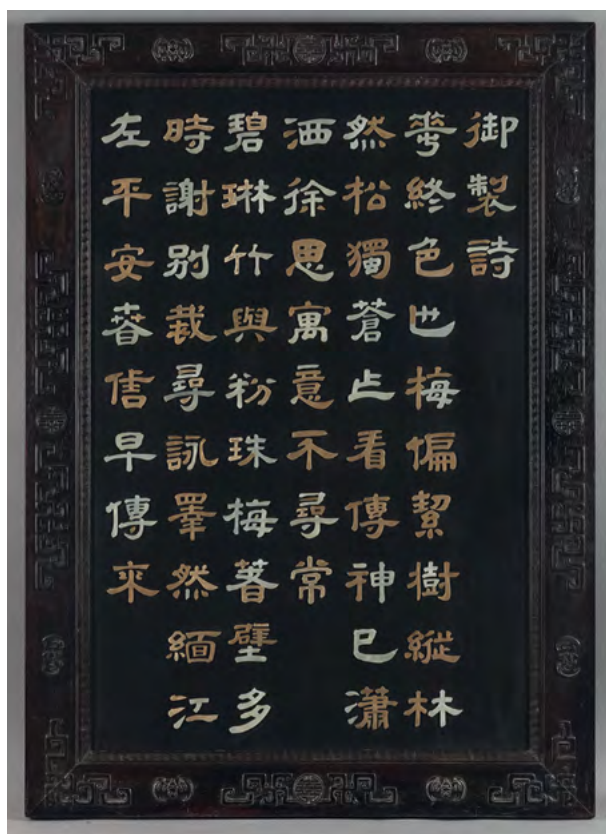 御製詩
華終色也梅偏絜樹縱林
然松獨蒼乍看傳神已瀟
洒徐思寓意不尋常
碧琳竹與粉珠梅著壁多
時謝別栽尋詠睪然緬江
左平安春信早傳來